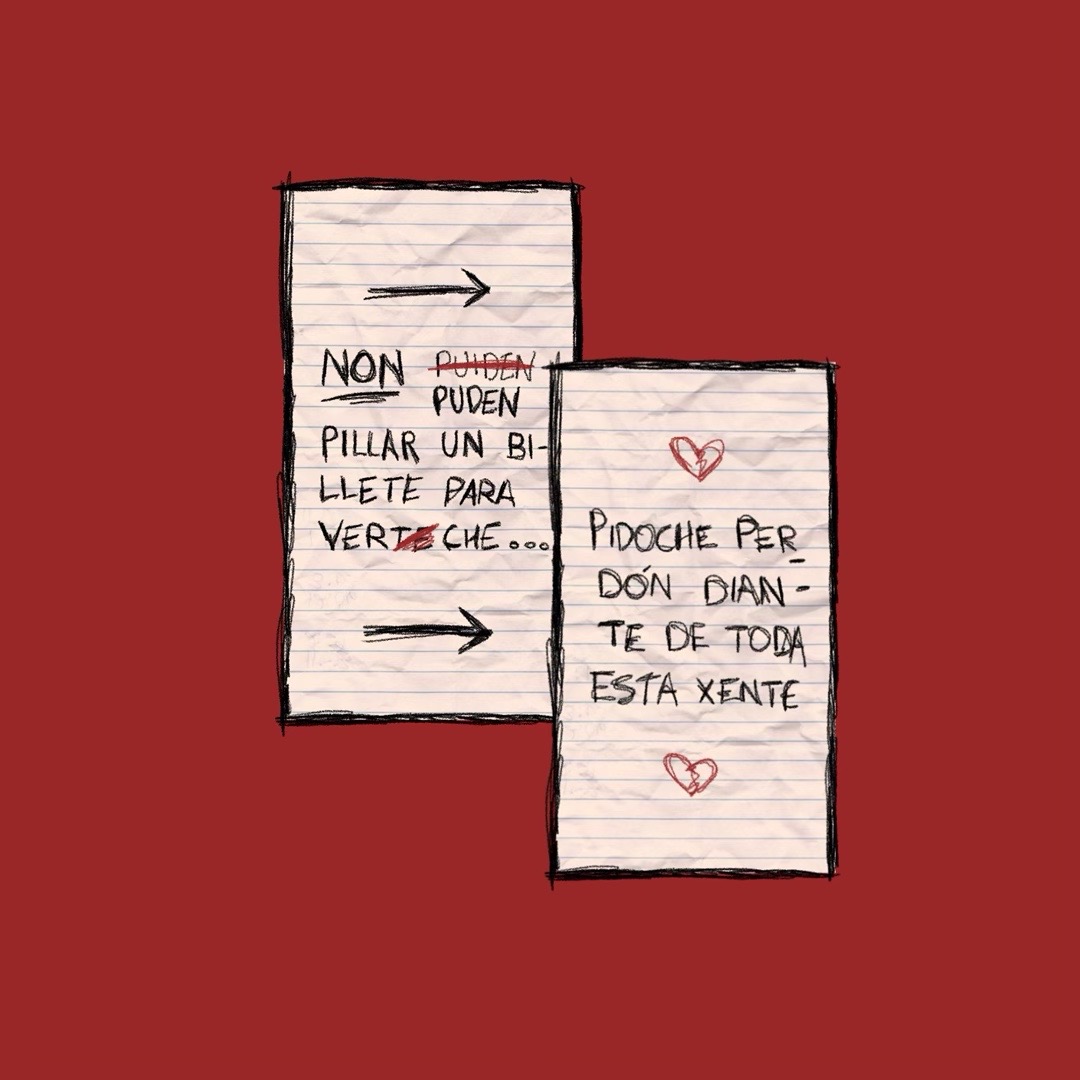 NON PUIDEN
PUDEN
PILLAR UN BI-
LLETE PARA
VERTE CHE...
PIDOCHE PER-
DÓN DIAN-
TE DE TODA
ESTA XENTE